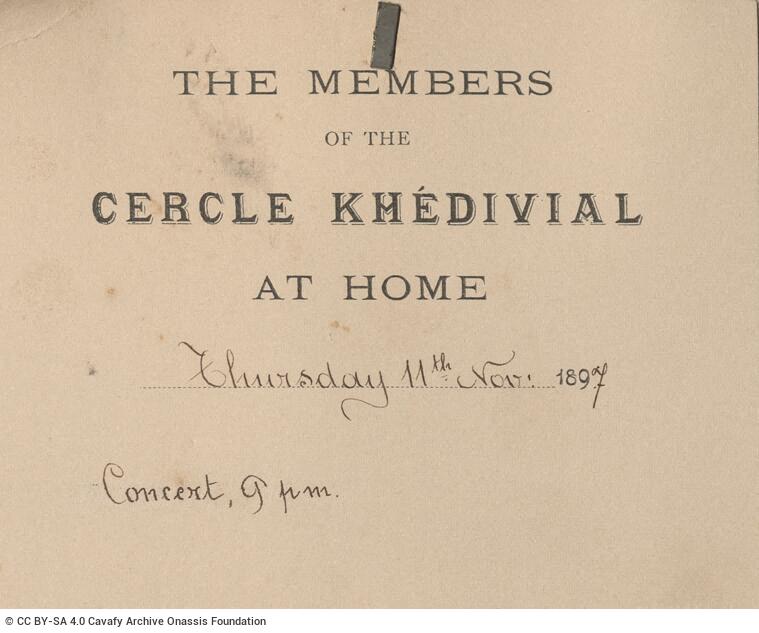 THE MEMBERS
OF THE
CERCLE KHÉDIVIAL
AT HOME
Thursday 11th Nov: 1897
Concert, 9 pm.
© CC BY-SA 4.0 Cavafy Archive Onassis Foundation